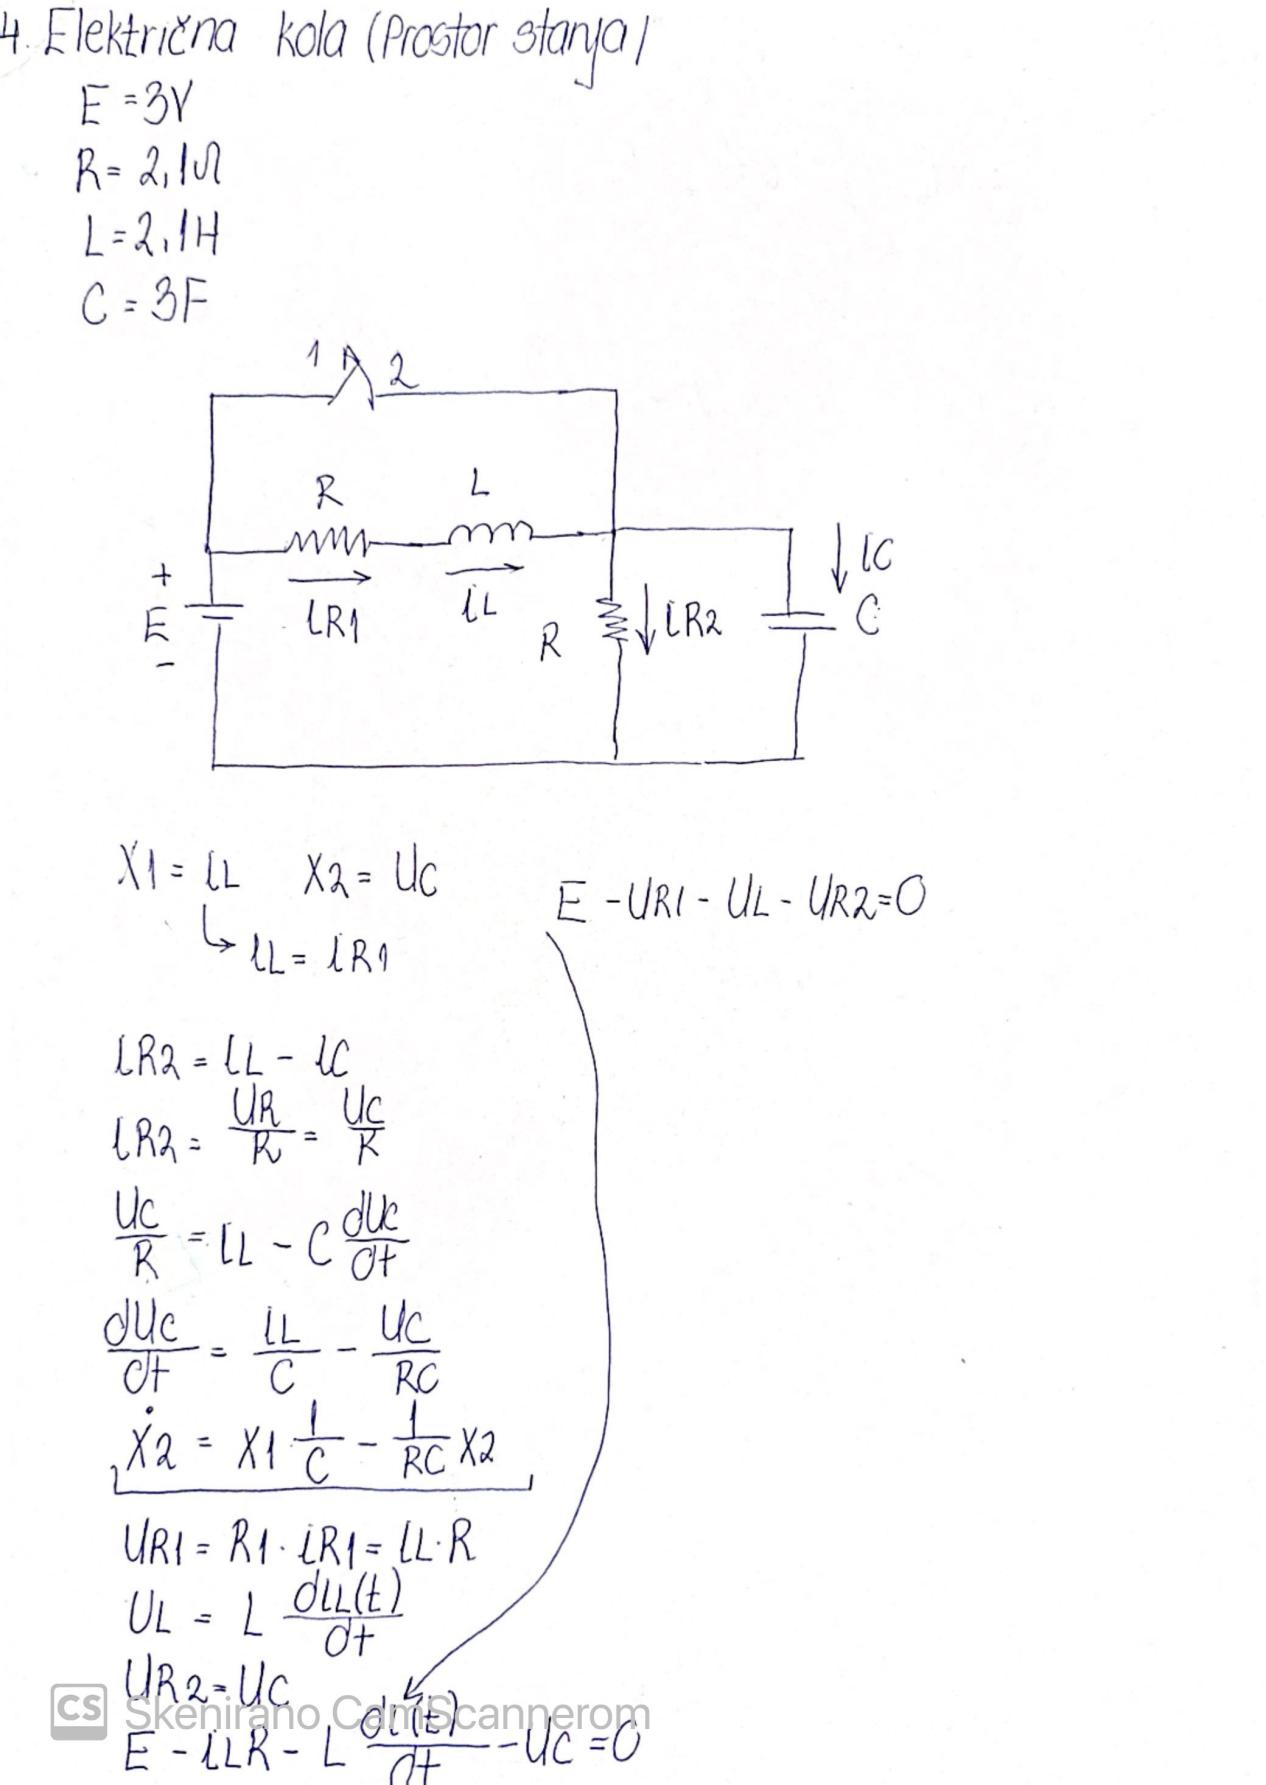 4. Električna kola (Prostor stanja)
E = 3V
R = 2,1Ω
L = 2,1H
C = 3F
1 2
R L
+
E
-
iR1
iL
R
iR2
iC
C
X1 = iL X2 = UC
iL = iR1
E - UR1 - UL - UR2 = 0
iR2 = iL - iC
iR2 = UR/R = UC/R
UC/R = iL - C dUc/dt
dUc/dt = iL/C - UC/RC
Ẋ2 = X1 1/C - 1/RC X2
UR1 = R1 · iR1 = iL · R
UL = L diL(t)/dt
UR2 = UC
CS Skenirano CamScannerom
E - iLR - L diL(t)/dt - UC = 0